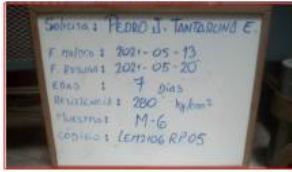 Solicita: PEDRO J. TANTARUNA E.
F. moldeo: 2021-05-13
F. Rotura: 2021-05-20
Edad: 7 Días
Resistencia: 280 kg/cm²
Muestra: M-6
Código: LEM2106RP05